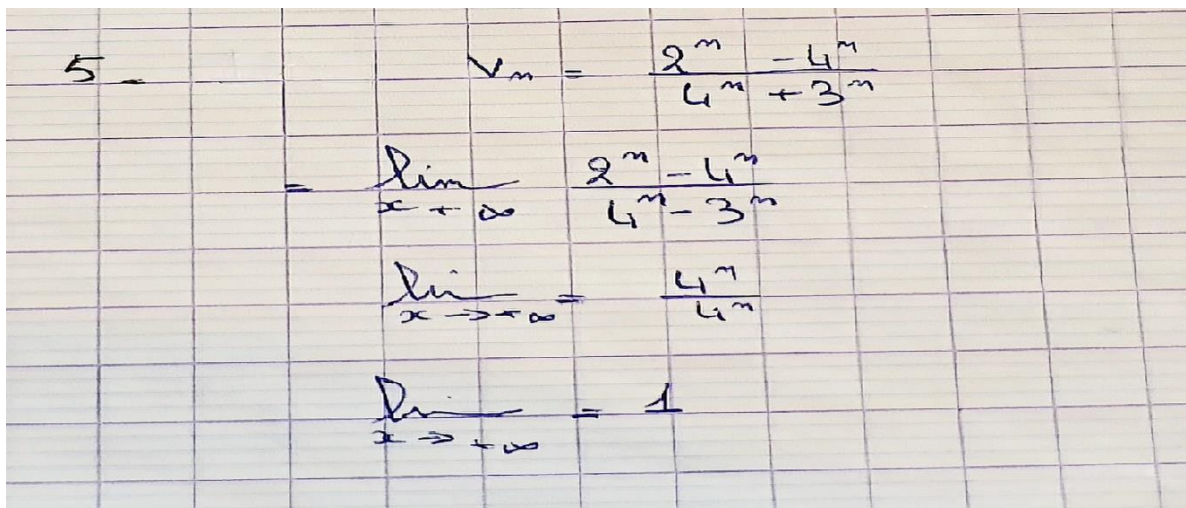 5 - Vn = (2^n - 4^n) / (4^n + 3^n)
= lim x + ∞ (2^n - 4^n) / (4^n - 3^n)
li x → + ∞ = 4^n / 4^n
li x → + ∞ = 1